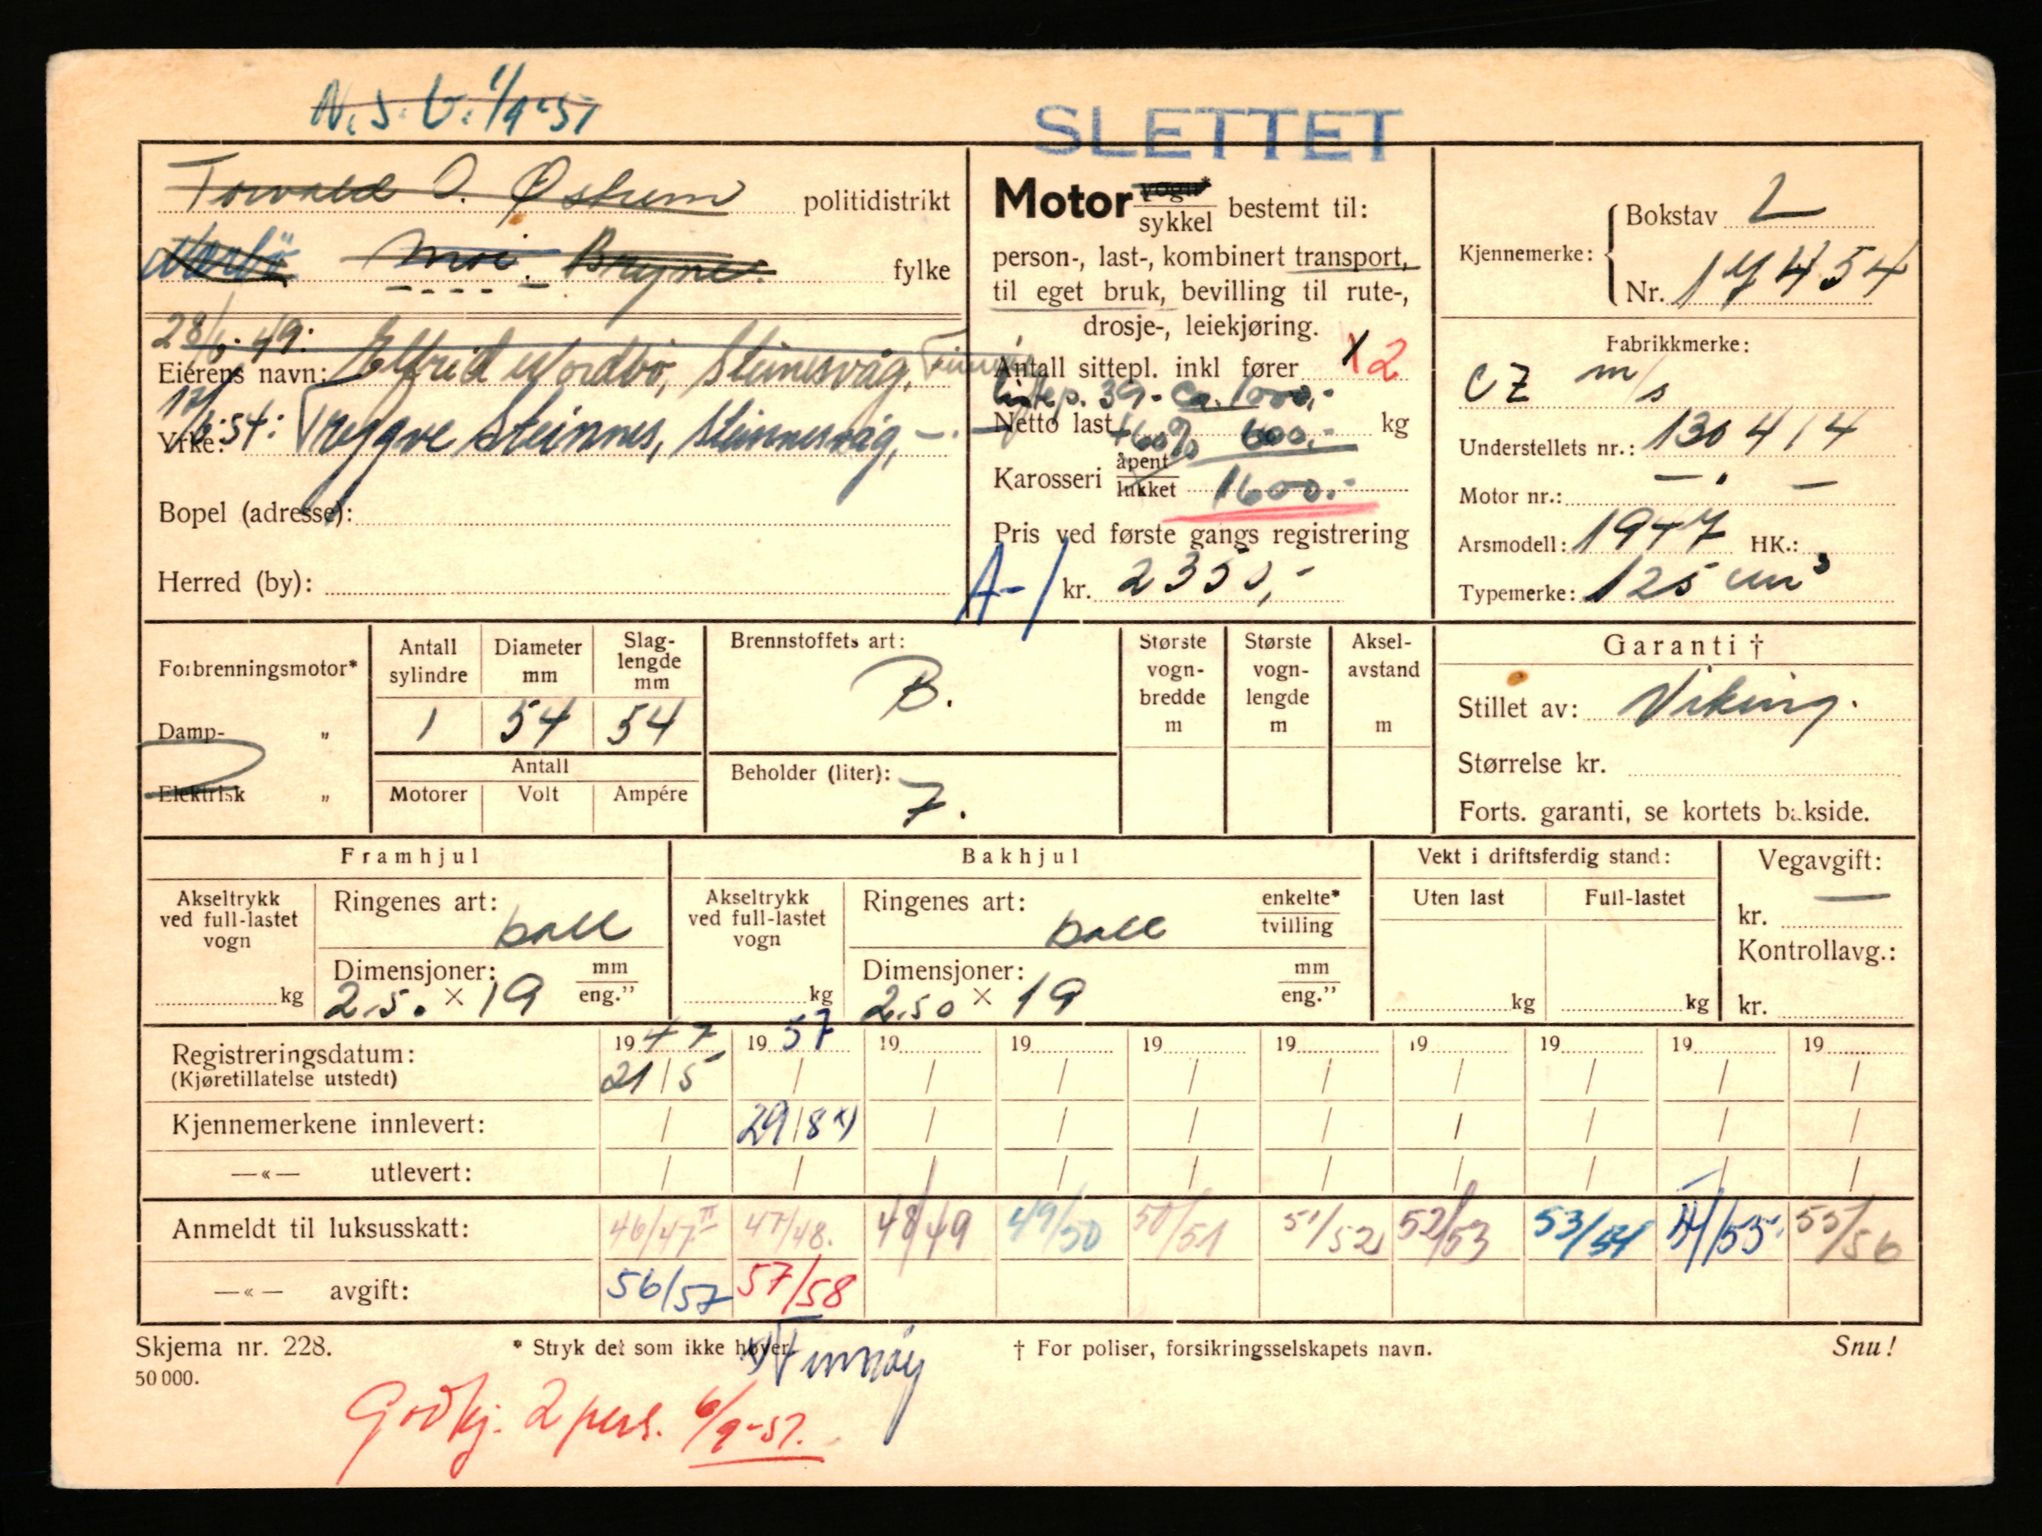 N.S.U. 1/9-51
SLETTET
Torvald O. Østrem politidistrikt
Moi. Bryne. fylke
28/6.49: Elfrid Nordbø, Steinesvåg,
Eierens navn:
Yrke: 54: Tryggve Steinnes, Steinnesvåg,
Bopel (adresse):
Herred (by):
Motor vogn*
sykkel bestemt til:
person-, last-, kombinert transport,
til eget bruk, bevilling til rute-,
drosje-, leiekjøring.
Antall sittepl. inkl fører 1 2
Listep. 39- ca. 1000,-
Netto last kg
+60% 600.-
Karosseri åpent
lukket 1600.-
Pris ved første gangs registrering
A-1 kr. 2350,-
Kjennemerke: Bokstav L
Nr. 17454
Fabrikkmerke:
CZ m/s
Understellets nr.: 130414
Motor nr.: — . —
Arsmodell: 1947 HK.:
Typemerke: 125 cm³
Forbrenningsmotor*
Damp- "
Elektrisk "
Antall sylindre Diameter mm Slag-lengde mm
1 54 54
Antall
Motorer Volt Ampére
Brennstoffets art:
B.
Beholder (liter):
7.
Største vogn-bredde m Største vogn-lengde m Aksel-avstand m
Garanti †
Stillet av: Viking.
Størrelse kr.
Forts. garanti, se kortets bakside.
Framhjul
Akseltrykk ved full-lastet vogn
kg
Ringenes art: ball
Dimensjoner: mm
eng."
2.50 × 19
Bakhjul
Akseltrykk ved full-lastet vogn
kg
Ringenes art: ball enkelte*
tvilling
Dimensjoner: mm
eng."
2.50 × 19
Vekt i driftsferdig stand:
Uten last Full-lastet
kg kg
Vegavgift:
kr. —
Kontrollavg.:
kr.
1947 1957 19 19 19 19 19 19 19 19
Registreringsdatum:
(Kjøretillatelse utstedt) 21/5 / / / / / / / / /
Kjennemerkene innlevert: / 29/8 x) / / / / / / / /
—«— utlevert: / / / / / / / / / /
Anmeldt til luksusskatt: 46/47 II 47/48. 48/49 49/50 50/51 51/52 52/53 53/54 54/55. 55/56
—«— avgift: 56/57 57/58
Skjema nr. 228. * Stryk det som ikke høver. † For poliser, forsikringsselskapets navn. Snu!
x) Finnøy
50 000.
Godkj. 2 pers. 6/9-51.